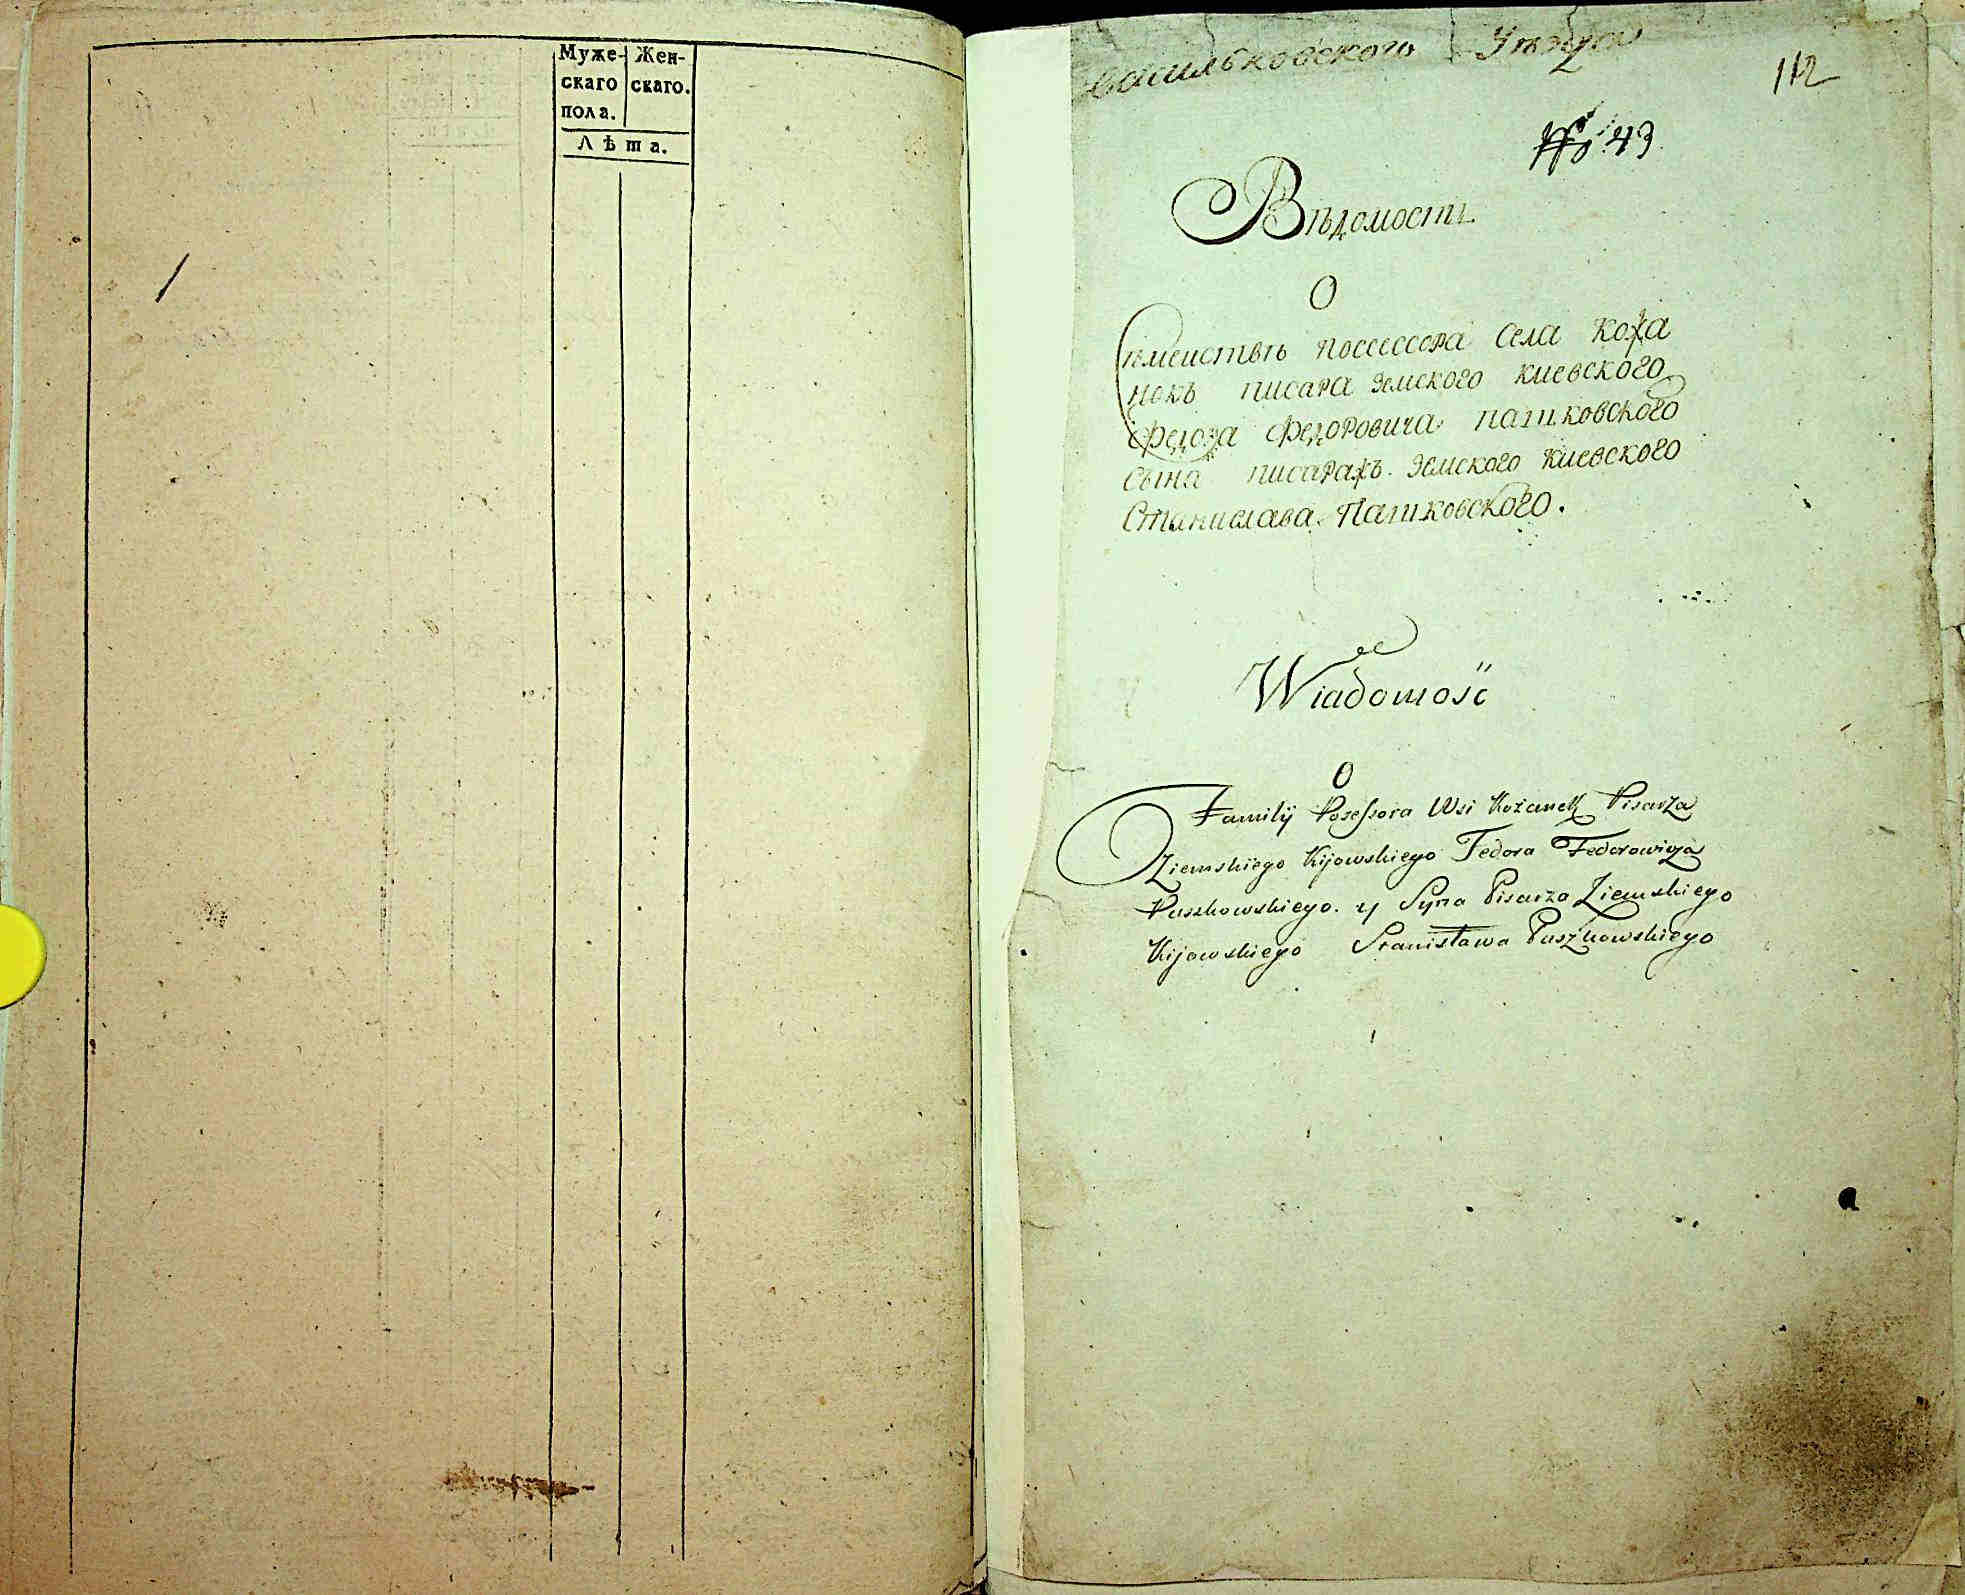 Муже- Жен-
скаго скаго.
пола.
Лѣта.
Васильковского Уѣзда
112
№ 43
Вѣдомость
О
Сѣмеиствѣ поссессора села Кожа
нокъ писара земского киевского
Федора Федоровича пашковского
сына писаражъ земского Киевского
Станислава Пашковского.
Wiadomość
O
Familÿ Posessora Wsi Kożanek Pisarza
Ziemskiego Kijowskiego Fedora Fedorowicza
Paszkowskiego. y Syna Pisarza Ziemskiego
Kijowskiego Stanisława Paszkowskiego